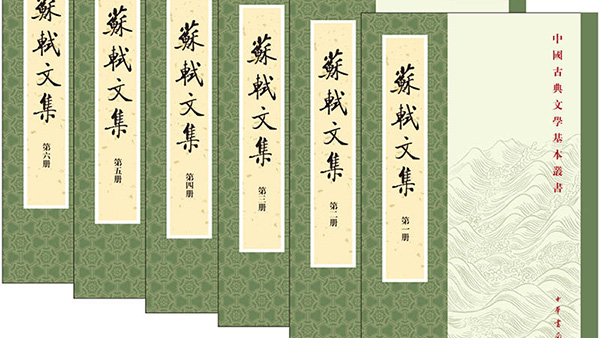 中國古典文學基本叢書
中華書局
蘇軾文集
第一册
蘇軾文集
第二册
蘇軾文集
第三册
蘇軾文集
第四册
蘇軾文集
第五册
蘇軾文集
第六册